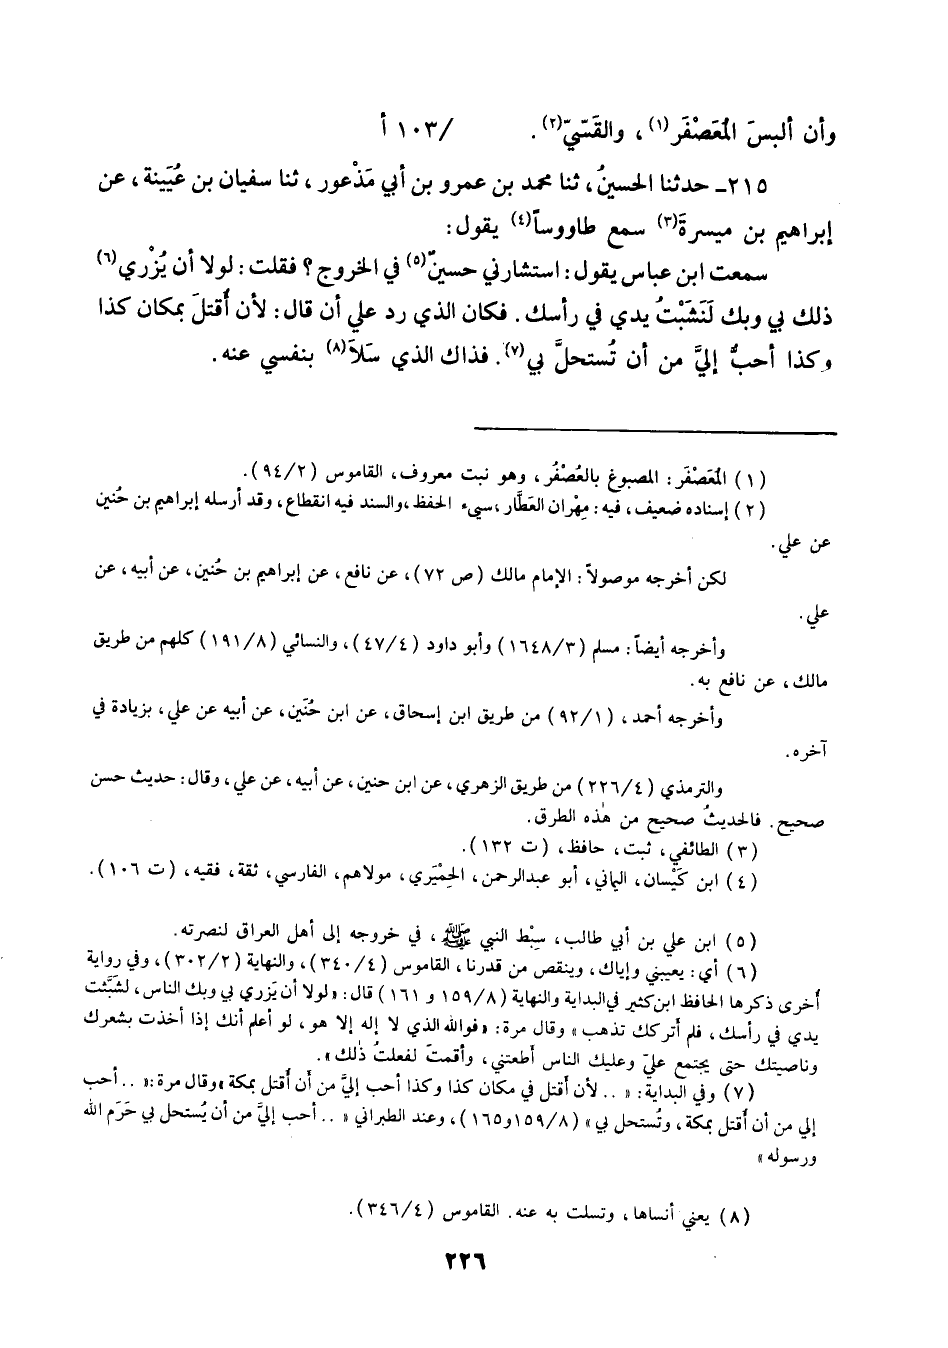 وأن ألبسَ المُعَصْفَر(١)، والقَسّيّ(٢). /١٠٣ أ
٢١٥ـ حدثنا الحسينُ، ثنا محمد بن عمرو بن أبي مَذْعور، ثنا سفيان بن عُيَينة، عن
إبراهيم بن ميسرةَ(٣) سمع طاووساً(٤) يقول:
سمعت ابن عباس يقول: استشارني حسينٌ(٥) في الخروج؟ فقلت: لولا أن يُزْري(٦)
ذلك بي وبك لَنَشَبْتُ يدي في رأسك. فكان الذي رد علي أن قال: لأن أُقتلَ بمكان كذا
وكذا أحبُّ إليَّ من أن تُستحلَّ بي(٧). فذاك الذي سَلاَ(٨) بنفسي عنه.
(١) المُعَصْفَر: المصبوغ بالعُصْفُر، وهو نبت معروف، القاموس (٩٤/٢).
(٢) إسناده ضعيف، فيه: مِهْران العَطَّار، سيىء الحفظ، والسند فيه انقطاع، وقد أرسله إبراهيم بن حُنين
عن علي.
لكن أخرجه موصولاً: الإمام مالك (ص ٧٢)، عن نافع، عن إبراهيم بن حُنين، عن أبيه، عن
علي.
وأخرجه أيضاً: مسلم (١٦٤٨/٣) وأبو داود (٤٧/٤)، والنسائي (١٩١/٨) كلهم من طريق
مالك، عن نافع به.
وأخرجه أحمد، (٩٢/١) من طريق ابن إسحاق، عن ابن حُنَين، عن أبيه عن علي، بزيادة في
آخره.
والترمذي (٢٢٦/٤) من طريق الزهري، عن ابن حنين، عن أبيه، عن علي، وقال: حديث حسن
صحيح. فالحديثُ صحيح من هذه الطرق.
(٣) الطائفي، ثبت، حافظ، (ت ١٣٢).
(٤) ابن كَيْسان، اليماني، أبو عبدالرحمن، الحِمْيَري، مولاهم، الفارسي، ثقة، فقيه، (ت ١٠٦).
(٥) ابن علي بن أبي طالب، سِبْط النبي ﷺ، في خروجه إلى أهل العراق لنصرته.
(٦) أي: يعيبني وإياك، وينقص من قدرنا، القاموس (٣٤٠/٤)، والنهاية (٣٠٢/٢)، وفي رواية
أُخرى ذكرها الحافظ ابن كثير في البداية والنهاية (١٥٩/٨ و ١٦١) قال: «لولا أن يَزري بي وبك الناس، لشَبَّثت
يدي في رأسك، فلم أتركك تذهب» وقال مرة: «فوالله الذي لا إله إلا هو، لو أعلم أنك إذا أخذت بشعرك
وناصيتك حتى يجتمع عليّ وعليك الناس أطعتني، وأقمتَ لفعلتُ ذلك».
(٧) وفي البداية: «.. لأن أقتل في مكان كذا وكذا أحب إليَّ من أن أُقتل بمكة» وقال مرة: «.. أحب
إلي من أن أُقتل بمكة، وتُستحل بي» (١٥٩/٨و١٦٥)، وعند الطبراني «.. أحب إليَّ من أن يُستحل بي حَرَم الله
ورسوله»
(٨) يعني أنساها، وتسلت به عنه. القاموس (٣٤٦/٤).
٢٢٦